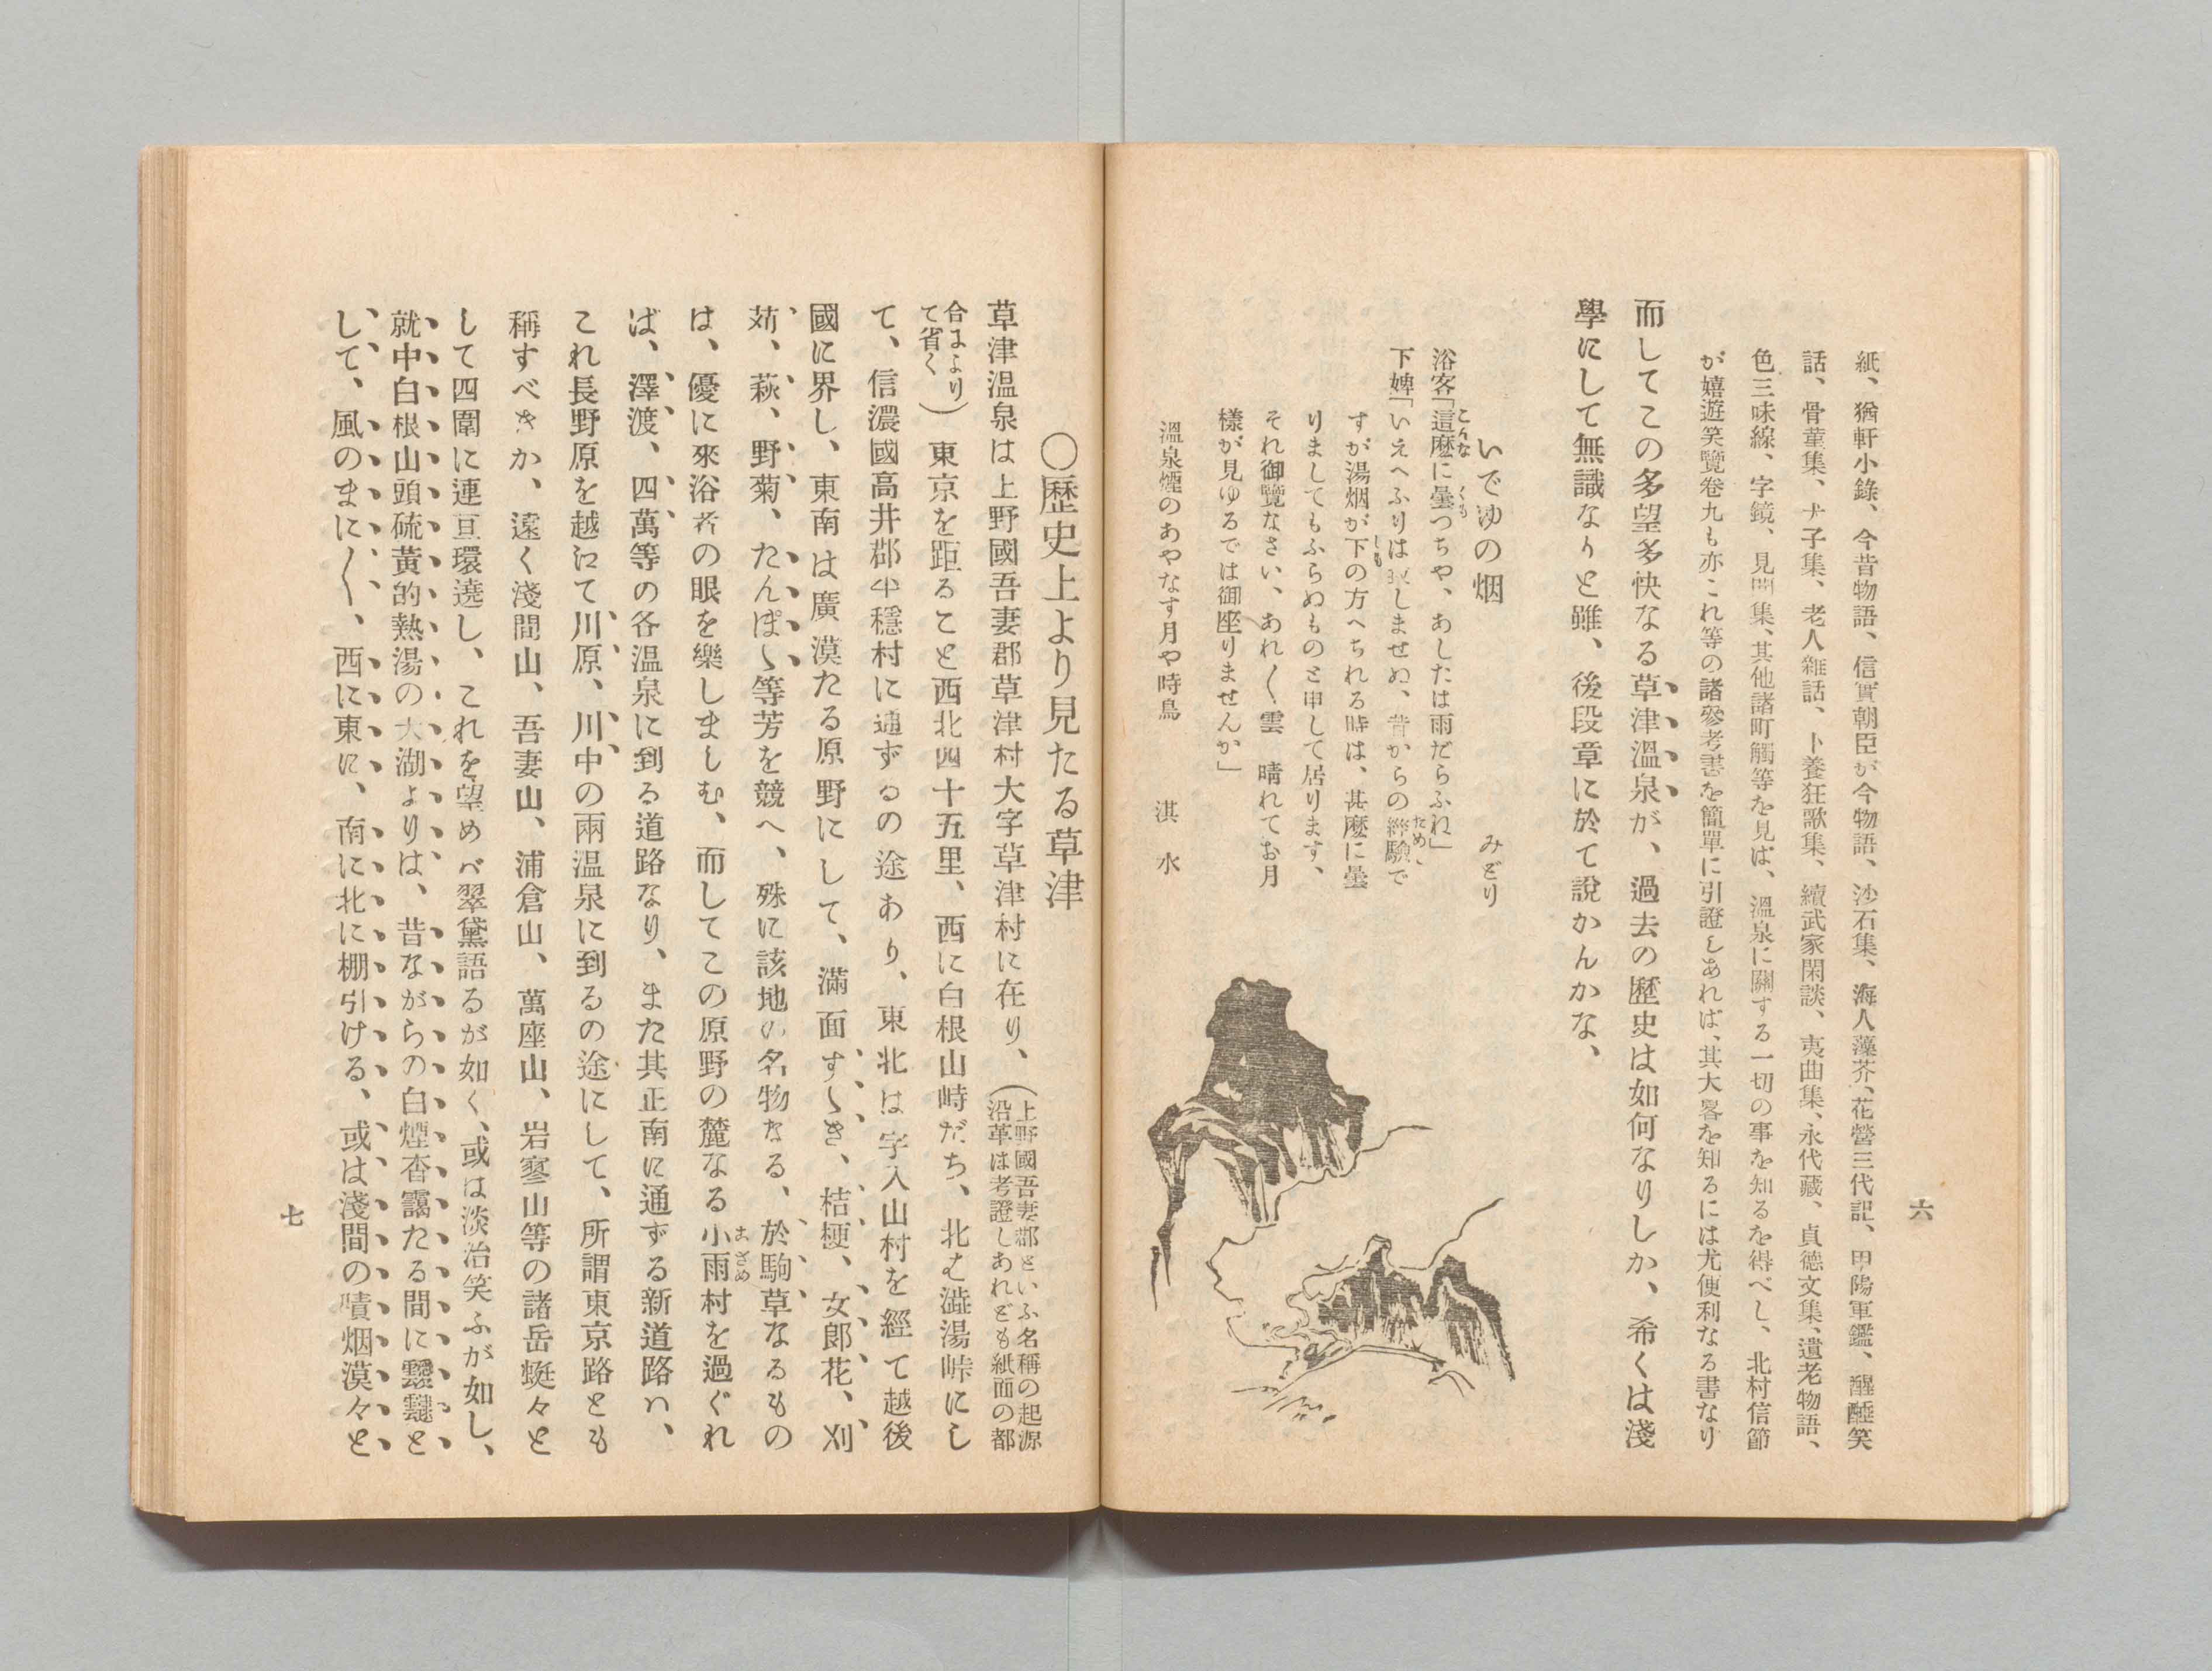 紙、猶軒小錄、今昔物語、信實朝臣が今物語、沙石集、海人藻芥、花營三代記、甲陽軍鑑、醒醉笑
話、骨董集、尤子集、老人雜話、卜養狂歌集、續武家閑談、夷曲集、永代藏、貞德文集、遺老物語、
色三味線、字鏡、見聞集、其他諸町觸等を見ば、溫泉に關する一切の事を知るを得べし、北村信節
が嬉遊笑覽卷九も亦これ等の諸參考書を簡單に引證しあれば、其大畧を知るには尤便利なる書なり
而してこの多望多快なる草津溫泉が、過去の歷史は如何なりしか、希くは淺
學にして無識なりと雖、後段章に於て說かんかな、
いでゆの烟
みどり
浴客「這麽に曇つちや、あしたは雨だらふね」
下婢「いえへふりは致しませぬ、昔からの經驗で
すが湯烟が下の方へちれる時は、甚麽に曇
りましてもふらぬものと申して居ります、
それ御覽なさい、あれ〱雲 晴れてお月
樣が見ゆるでは御座りませんか」
溫泉煙のあやなす月や時鳥
淇水
六
○歷史上より見たる草津
草津溫泉は上野國吾妻郡草津村大字草津村に在り、(上野國吾妻郡といふ名稱の起源
沿革は考證しあれども紙面の都
合により
て省く)東京を距ること西北四十五里、西に白根山峙だち、北む澁湯峠にし
て、信濃國高井郡平穩村に通ずるの途あり、東北は字入山村を經て越後
國に界し、東南は廣漠たる原野にして、滿面すゝき、桔梗、女郎花、刈
茢、萩、野菊、たんぽゝ等芳を競へ、殊に該地の名物なる、於駒草なるもの
は、優に來浴者の眼を樂しましむ、而してこの原野の麓なる小雨村を過ぐれ
ば、澤渡、四萬等の各溫泉に到る道路なり、また其正南に通ずる新道路ハ、
これ長野原を越にて川原、川中の兩溫泉に到るの途にして、所謂東京路とも
稱すべきか、遠く淺間山、吾妻山、浦倉山、萬座山、岩寥山等の諸岳蜒々と
して四圍に連亘環遶し、これを望めべ翠黛語るが如く、或は淡治笑ふが如し、
就中白根山頭硫黃的熱湯の大湖よりは、昔ながらの白煙杳靄たる間に靉靆と
して、風のまに〱、西に東に、南に北に棚引ける、或は淺間の噴烟漠々と
こんな
くも
しも
ため
まざめ
七